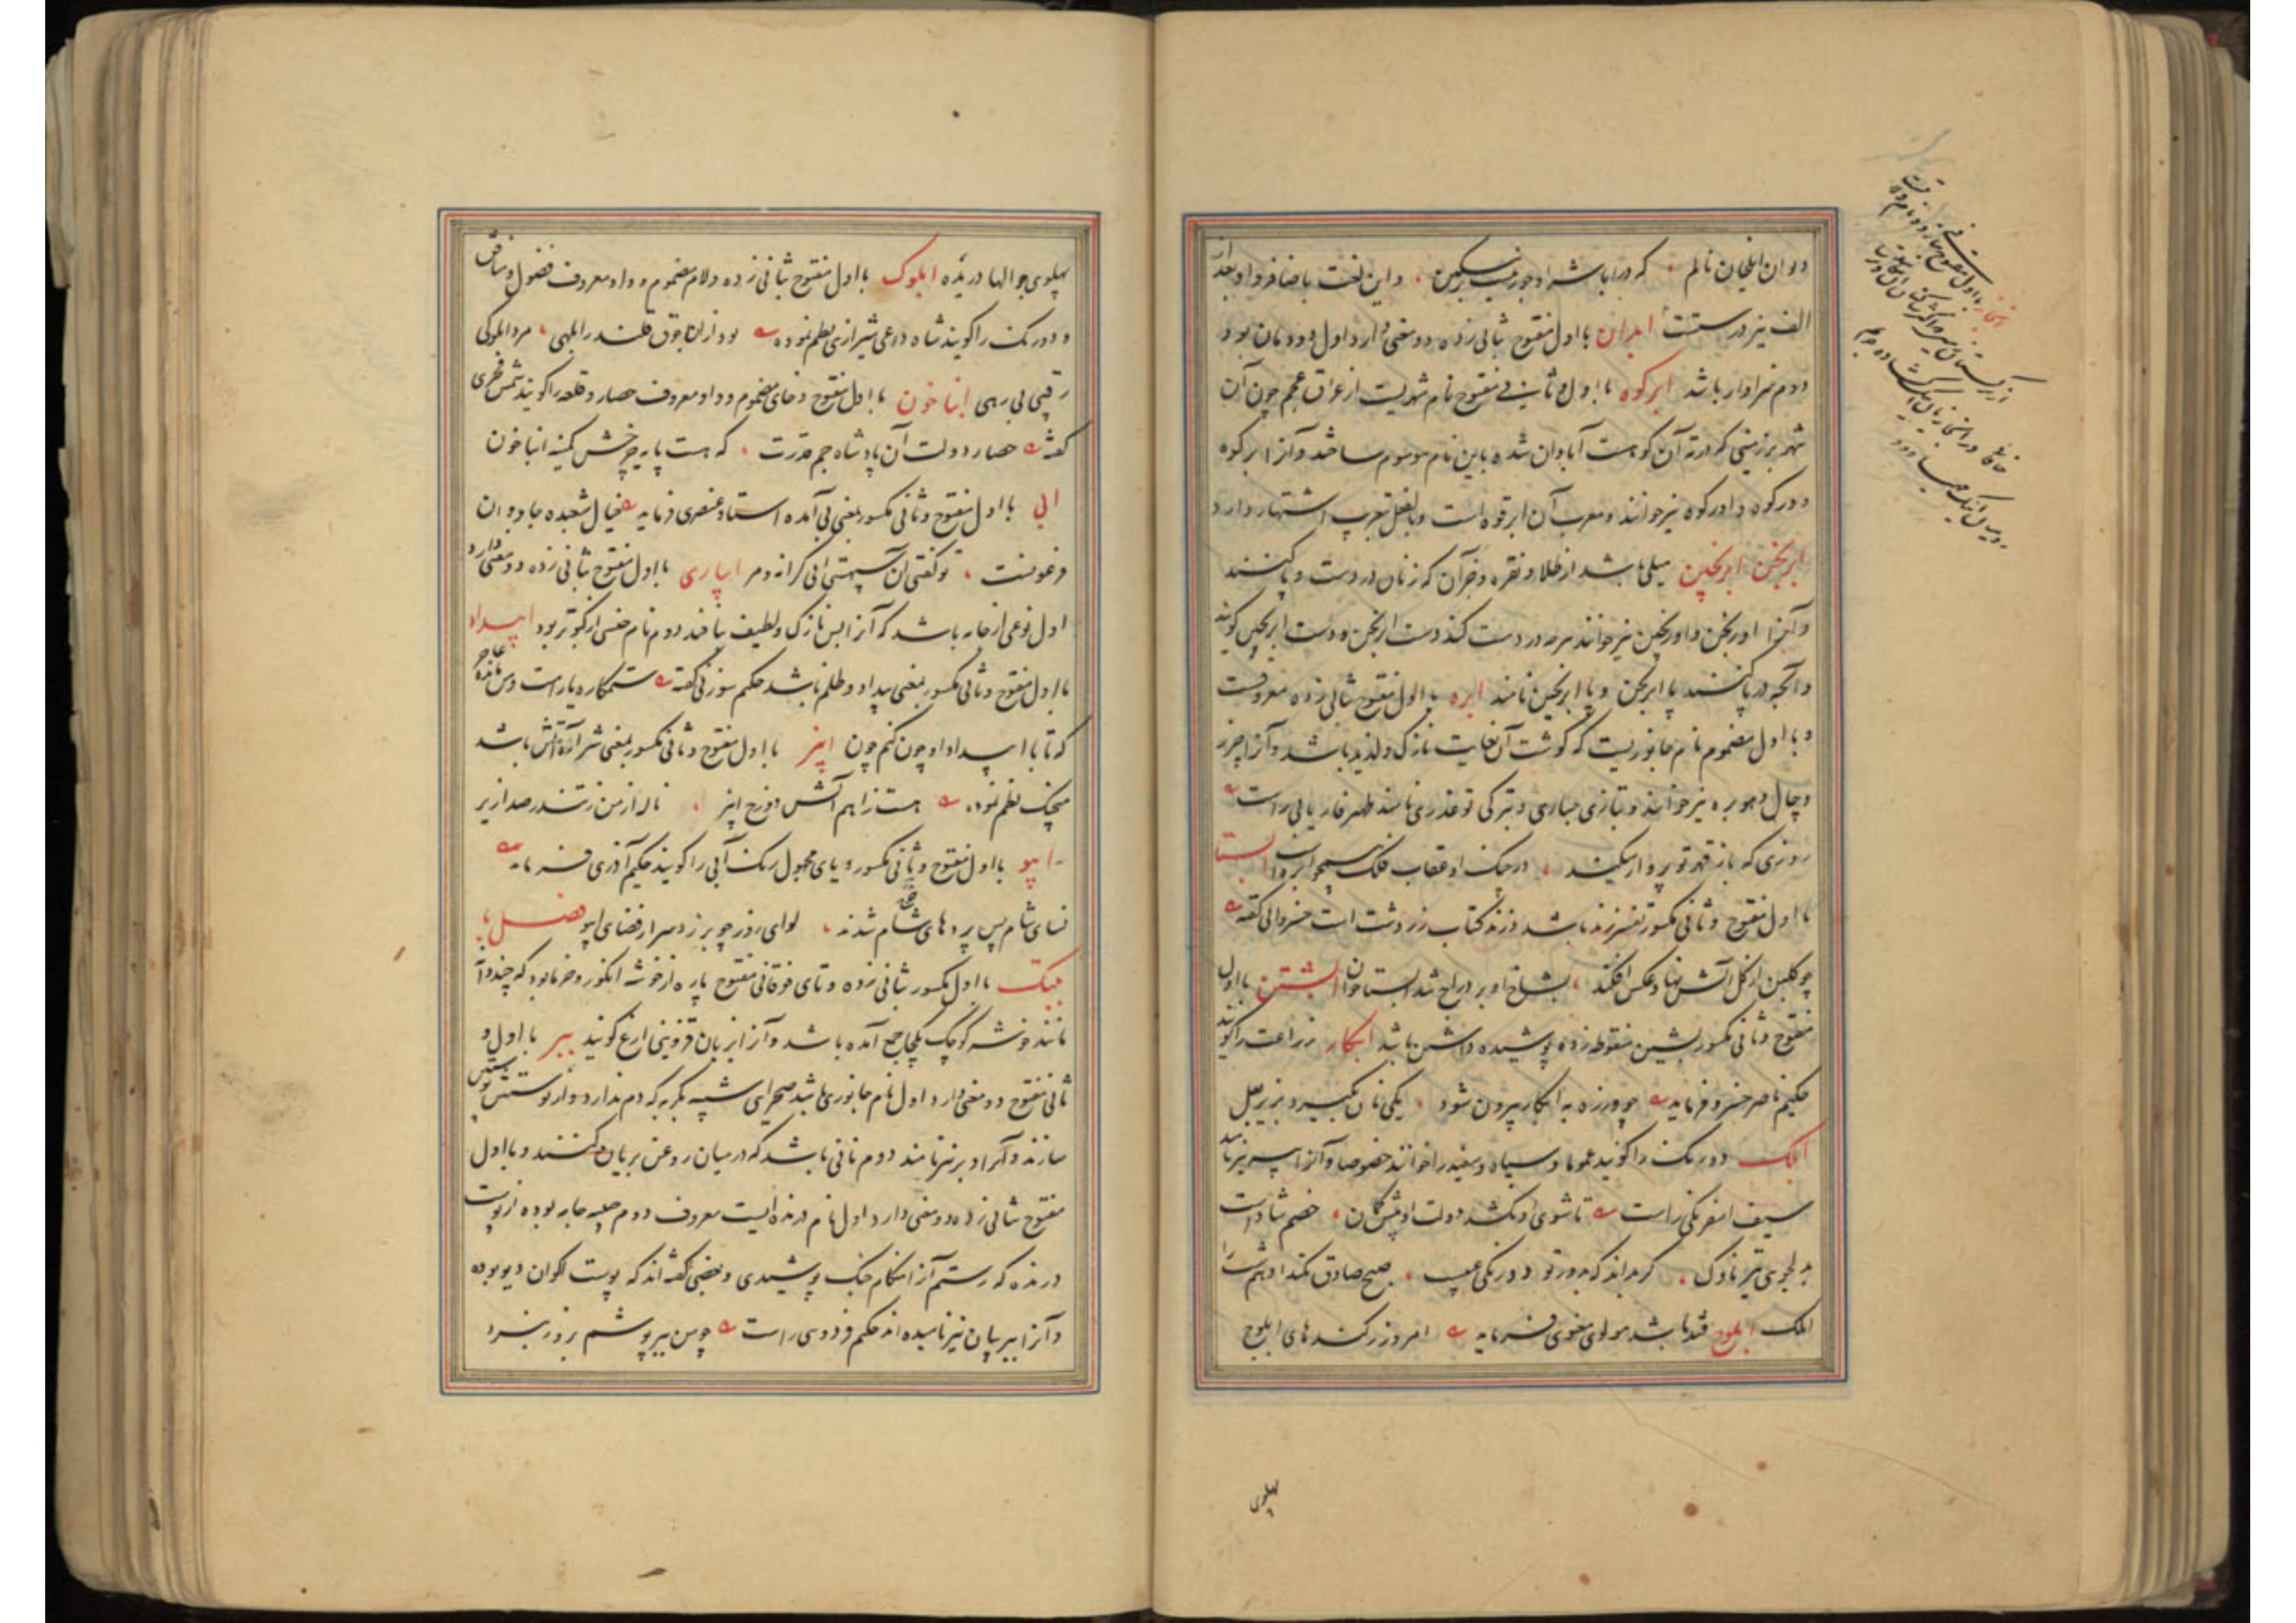 دوان ایلخان نالم که در اباشد او جور بر مسکین واین لغت باضافه واو بعد از
الف نیز درستست ابدان با اول مفتوح بثانی زده دو معنی دارد اول دودمان بود
دوم سزاوار باشد ابرکوه با اول و ثانی مفتوح نام شهریست از عراق عجم چون آن
شهر بر زمینی که در ته آن کوهست آبادان شده باین نام موسوم ساختند و آنرا برکوه
و درکوه و ادرکوه نیز خوانند و معرب آن ابرقوه است و بالفعل بتعریب اشتهار دارد
ابرنجن ابرنجین میلی باشد از طلا و نقره و جز آن که زنان در دست و پا کنند
و آنرا اورنجن و اورنجین نیز خوانند هرچه در دست کنند دست ابرنجن و دست ابرنجین گویند
و آنچه در پا کنند پا ابرنجن و پا ابرنجین نامند ابره با اول مفتوح بثانی زده معروفست
و با اول مضموم نام جانوریست که گوشت آن بغایت نازک و لذیذ باشد و آنرا چرز
و چال و هوبره نیز خوانند و بتازی حباری و بترکی توغدری نامند ظهیر فاریابی راست
روزی که باز قهر تو پرواز میکند در چنگ او عقاب فلک همچو ابره است ابستا
با اول مفتوح و ثانی مکسور تفسیر زند باشد و زند کتاب زردشت است خسروانی گفته
چو گلبن از گل آتش نهاد و عکس افکند بشاخ او بر دراج شد ابستا خوان ابشتن با اول
مفتوح و ثانی مکسور بشین منقوطه زده پوشیده داشتن باشد ابکار زراعت را گویند
حکیم ناصر خسرو فرماید چو ورزه به ابکار بیرون شود یکی نان بگیرد بزیر بغل
ابلک دورنگ را گویند عموما و سیاه و سفید را خوانند خصوصا و آنرا پیسه نیز نامند
سیف اسفرنگی راست تا شوی او نکشد دولت او پشت کمان خصم شاد است
بدلجوی تیر ناوک گر بداند که بدور تو دورنگی عیب صبح صادق نکند ادهم شب را
ابلک ابلوج قند باشد مولوی معنوی فرماید امروز ز کندهای ابلوج
پهلوی
پهلوی جوالها دریده ابلوک با اول مفتوح بثانی زده و لام مضموم و واو معروف فضول و منافق
و دورنگ را گویند شاه داعی شیرازی نظم نموده بود از ان جوق قلندر ابلهی مرد ابلوکی
رقیی بی رهی انباخون با اول مفتوح و خای مضموم و واو معروف حصار و قلعه را گویند شمس فخری
گفته حصار دولت آن پادشاه جم قدرت که هست پایه چرخش کمینه انباخون
ابی با اول مفتوح و ثانی مکسور بمعنی بی آمده استاد عنصری فرماید خیال شعبده جادوان
فرعونست تو گفتی آن سپهستی ابی کرانه و مر ابیاری با اول مفتوح بثانی زده دو معنی دارد
اول نوعی از جامه باشد که آنرا بس نازک و لطیف بافند دوم نام جنسی از کبوتر بود ابیداد
با اول مفتوح و ثانی مکسور بمعنی بیداد و ظلم باشد حکیم سوزنی گفته ستمکاره یار است و من مانده عاجز
که تا با ابیداد او چون کنم چون ابیز با اول مفتوح و ثانی مکسور بمعنی شراره آتش باشد
منجیک نظم نموده هست ز آهم آتش دوزخ ابیز ناله از من تندر صد ازیز
ابیو با اول مفتوح و ثانی مکسور و یای مجهول رنگ آبی را گویند حکیم آذری فرماید
نسای شام پس پرده‌های شام شدند لوای روز چو بر زد سر از فضای ابیو فصل با
ببتک با اول مکسور بثانی زده و تای فوقانی مفتوح پاره از خوشه انگور و خرما بود که چند دانه
مانند خوشه کوچک یکجا جمع آمده باشد و آنرا بزبان قزوینی ارغ گویند ببر با اول و
ثانی مفتوح دو معنی دارد اول نام جانوری باشد صحرای شبیه بگربه که دم ندارد و از پوستش پوستین
سازند و آنرا وبر نیز نامند دوم نانی باشد که در میان روغن بریان کنند و با اول
مفتوح بثانی زده دو معنی دارد اول نام درنده ایست معروف دوم جبه جامه بوده از پوست
درنده که رستم آنرا هنگام جنگ پوشیدی و بعضی گفته‌اند که پوست اکوان دیو بوده
و آنرا ببر بیان نیز نامیده اند حکیم فردوسی راست چو من ببر پوشم بروز نبرد